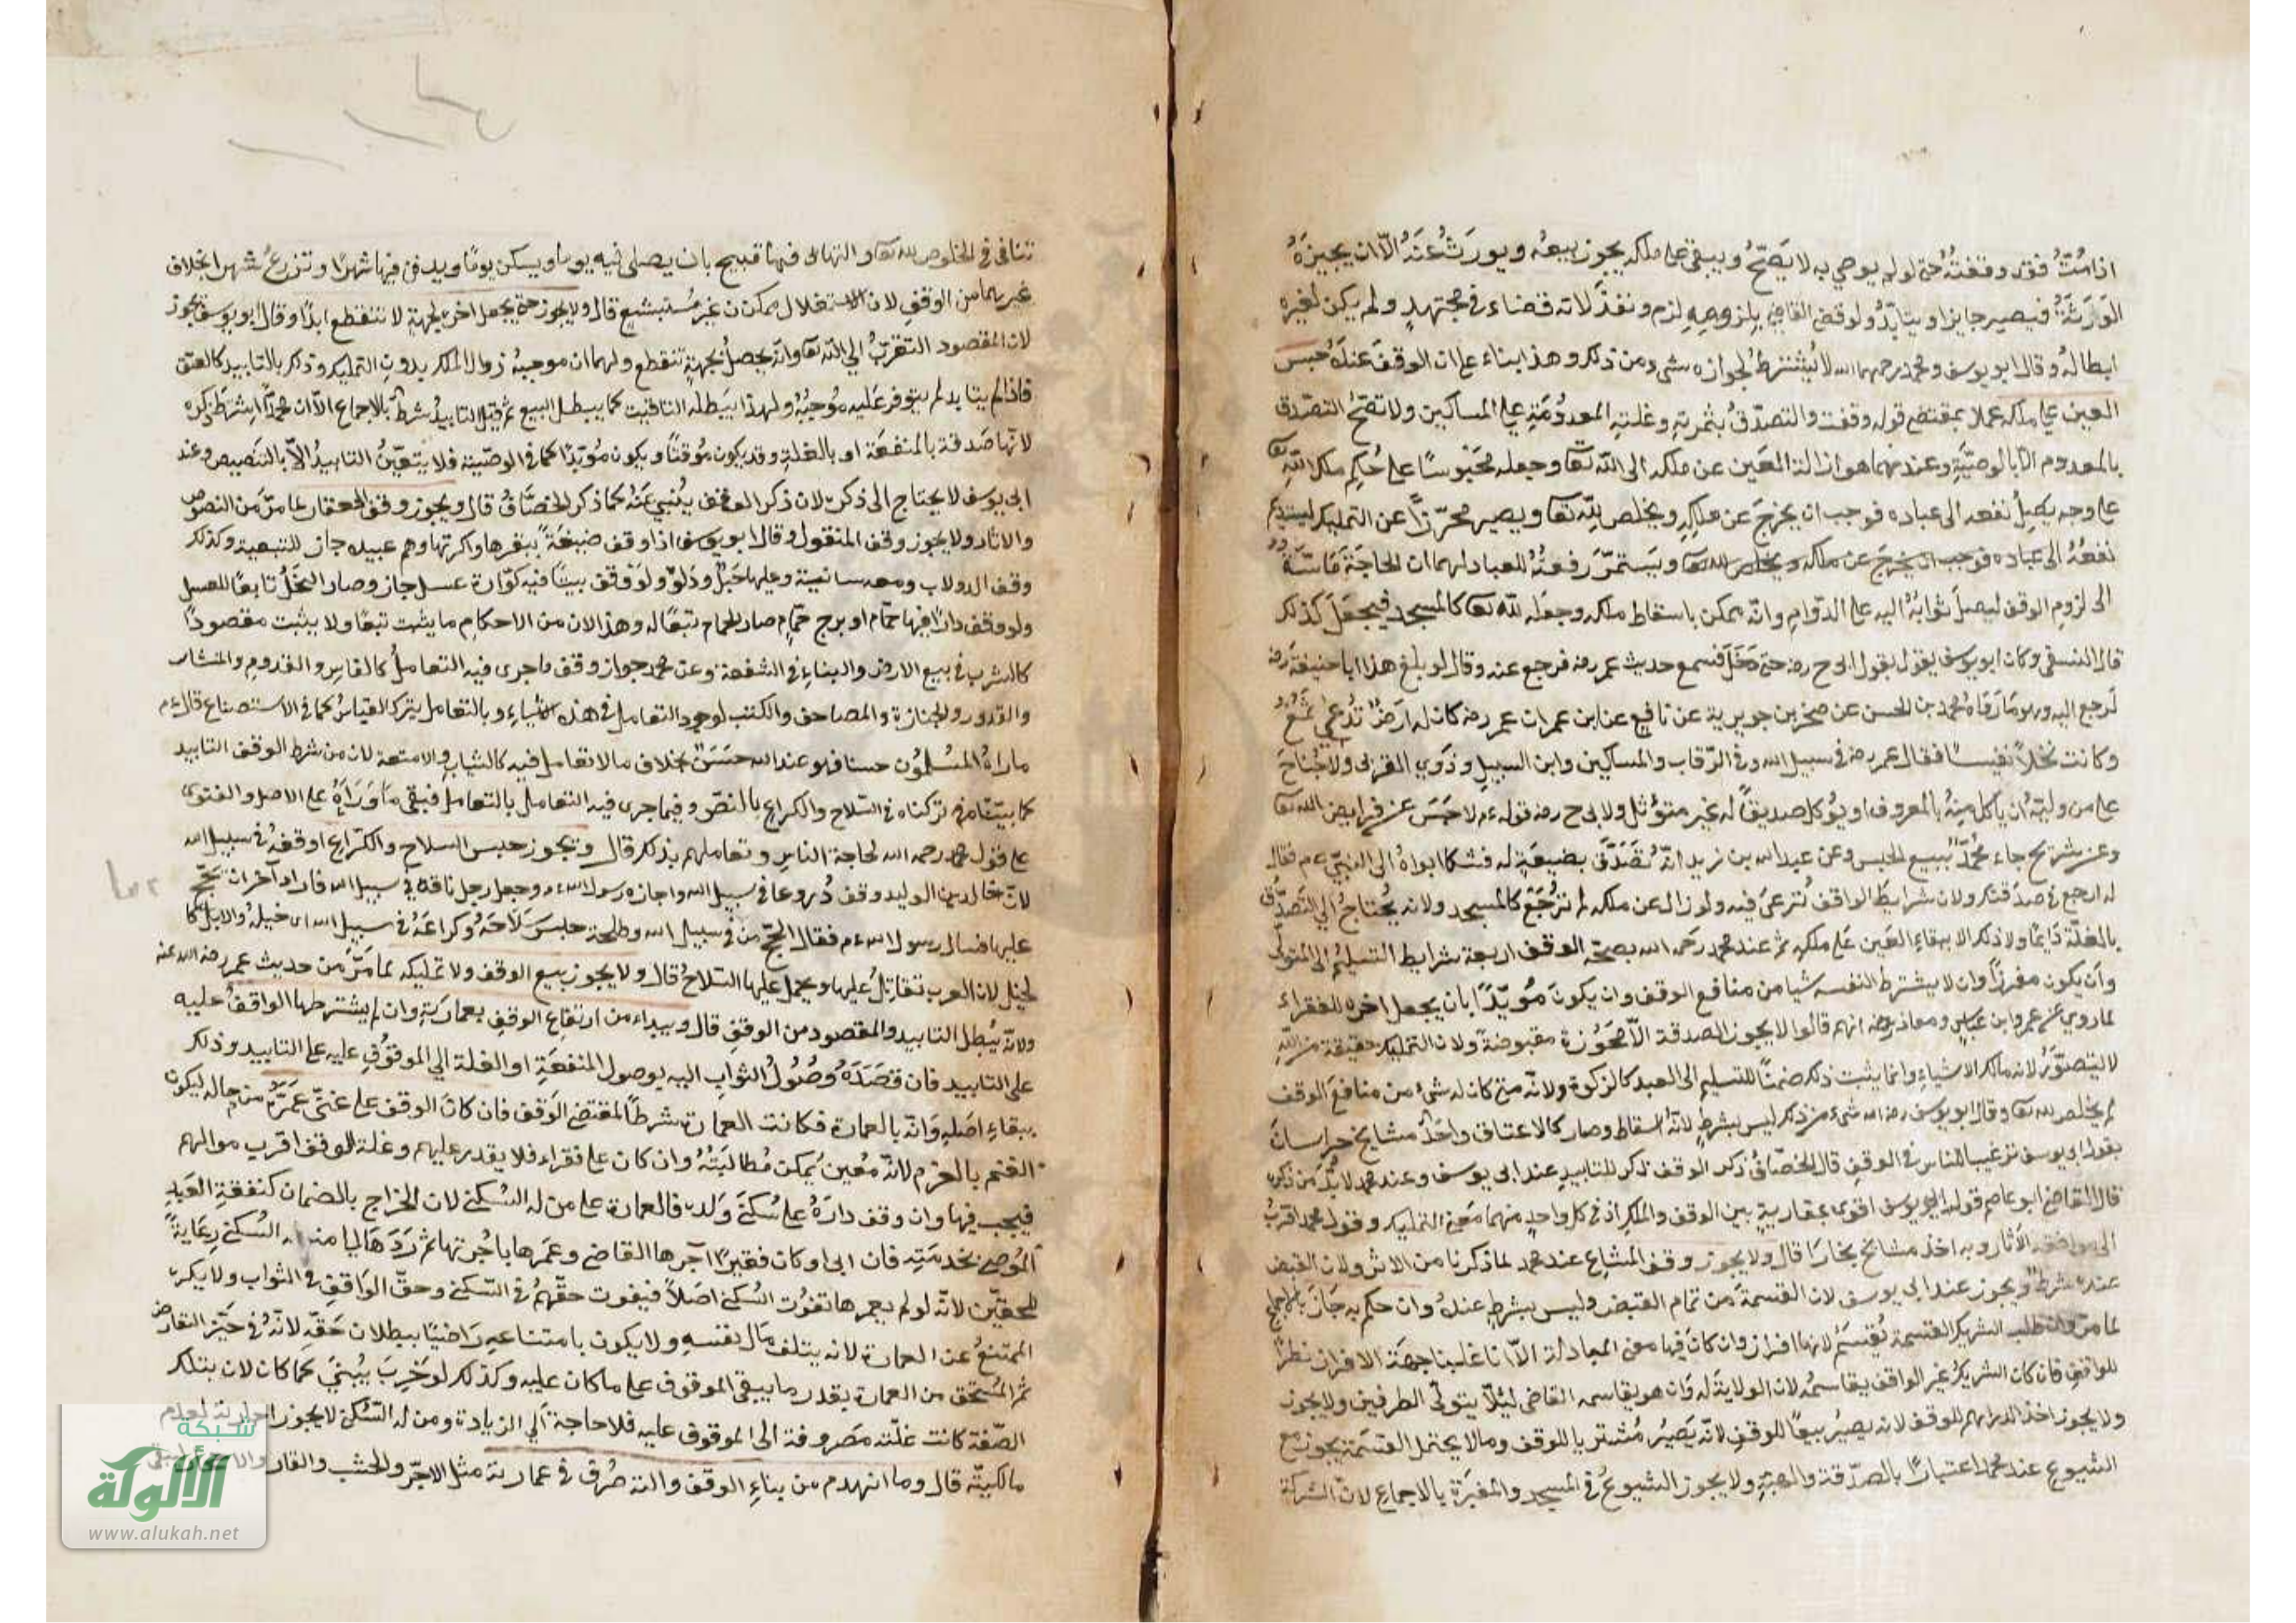 اذا مُتُّ فقد وقفتُهُ حتى لو لم يوص به لا يَصِحُّ ويبقى على ملكه يجوز بيعه ويورَثُ عَنْهُ الّا ان يجيزَهُ
الوَرَثَةُ فيصير جايزا ويتأبّدُ ولو قضى القاضي بلزومِهِ لزم ونفذ لانه قضاء في مجتهدٍ ولم يكن لغيره
ابطالهُ وقال ابو يوسف ومحمد رحمهما الله لا يُشترطُ لجوازه شىء من ذلك وهذا بناء على ان الوقفَ عندَهُ حبس
العين على ملكه عملا بمقتضى قوله وقفت والتصدّقُ بثمرتِهِ وغلتِهِ المعدُومَةِ على المساكين ولا تصحّ التصدّق
بالمعدوم الّا بالوصيّةِ وعندهما هو ازالة العَين عن ملكه الى الله تعا وجعله محبُوسًا على حُكم ملك اللهِ تعا
على وجه يَصِلُ نفعه الى عباده فوجب ان يخرجَ عن ملكِهِ ويخلص للهِ تعا ويصير محرّرًا عن التمليك ليستديم
نفعُهُ الى عباده فوجب ان يخرجَ عن ملكه ويخلص لله تعا ويَستمرّ للعباد لهما ان الحاجَةَ مَاسَّةٌ
الى لزوم الوقف ليصلَ ثوابُهُ اليه على الدّوامِ وانّه يمكن باسقاط ملكه وجعله لله تعا كالمسجد فيجعل كذلك
قال النسفى وكان ابو يوسف يقول بقول ابى ح رضه حتى دَخَلَ فسمع حديث عمر رضه فرجع عنه وقال لو بلغ هذا ابا حنيفةَ رضه
لَرجع اليه وهو مَا رَوَاهُ محمد بن الحسن عن صخر بن جويرية عن نافِع عن ابن عمر ان عمر رضه كان له ارَضٌ تُدعى ثَمْغُ
وكانت نخلًا نفيسًا فقال عمر رضه في سبيل الله وفى الرّقاب والمساكين وابن السبيلِ وذَوِي القربى ولا جُنَاحَ
على من وليَهُ ان ياكل منهُ بالمعروف او يُؤكل صديقًا له غير متموّثل ولابى ح رضه قوله عم لا حَبسَ عن فرايض الله تعا
وعن شريح جاء محمّدٌ ببيع الحبس وعن عبد الله بن زيد انّه تَصَدَّقَ بضيعَةٍ له فشكا ابواهُ الى النبيّ عم فقال
له ارجع في صدقتك ولان شرايطَ الواقف تُرعىَ فيه ولو زال عن ملكه لم تُرجَعْ كالمسجد ولانه يُحتاجُ الى التّصدُّق
بالغلّة دَايمًا ولا ذلك الا ببقاءِ العَين عَلى ملكِهِ ثم عند محمد رحمه الله بصحّة الوقف اربعة شرايط التسليم الى المتولّى
وان يكون مفرزًا وان لا يشترط لنفسه شيا من منافع الوقف وان يكون مُوَبَّدًا بان يجعل اخره للفقراء
لما روى عن عمر وابن عباسٍ ومعاذ رضه انهم قالوا لا يجوز الصدقة الاّ محَوُزة مقبوضةً ولان التمليك حقيقة من اللهِ
لا يتصوّرُ لانه مالك الاشياءِ وانما يثبت ذلك ضمنًا للتسليم الى العبد كالزكوة ولانّه متى كان له شىء من منافع الوقف
لم يخلص لله تعا وقال ابو يوسف رضه الله شىء من ذلك ليس بشرطٍ لانّه اسقاط وصار كالاعتاق واخَذَ مشايخ خراسان
بقول ابى يوسف ترغيبا للناس في الوقف قال الخصّافُ ذكر الوقف ذكر للتابيد عند ابى يوسف وعند محمد لا بُدَّ من ذكره
قال القاضى ابو عاصم قول ابى يوسف اقوى بمقاربةٍ بين الوقف والملك اذ في كل واحدٍ منهما معنى التمليك وقول محمد اقربُ
الى موافقة الآثار وبه اخذ مشايخ بخارَا قال ولا يجوز وقف المشاع عند محمد لما ذكرنا من الاثر ولان القبض
عنده شرط ويجوز عند ابى يوسف لان القسمةَ من تمام القبض وليس بشرطٍ عندهُ وان حكم به جَازَ بالاجماع
لما مرّ طلب الشريك القسمة يُقسَمُ لانها افراز وان كانَ فيها معنى المبادلة الاّ انا غلبنا جهَةَ الافراز نظرًا
للواقفِ فان كان الشريكُ غير الواقف يقاسمُهُ لان الولايةَ له وَان هو يقاسمه القاضى ليئلّا يتولّى الطرفين ولا يجوز
ولا يجوز اخذ الدراهم للوقف لانه يصيرُ بيعًا للوقفِ لانّه يَصيرُ مُشتريا للوقف ومالا يحتمل القسمَة يجوز مع
الشيوع عند محمد اعتبارًا بالصدّقة والهبةِ ولا يجوز الشيوعُ في المسجد والمقبَرَةِ بالاجماع لانّ الشركة
تنافى في الخلوص لله تعا والتهائى فيها قبيح بان يصلى فيه يوما ويسكن يومًا ويدفن فيها شهرًا وتزرعُ شهرا بخلاف
غيرهما من الوقفِ لان الاستغلال ممكن غير مُستبشعٍ قال ولا يجوز حتى يجعل اخره لجهةٍ لا تنقطع ابدًا وقال ابو يوسف يجوز
لان المقصود التقربُ الى الله تعا وانّه يحصلُ بجهةٍ تنقطع ولهما ان موجبهُ زوال الملك بدون التمليك وذلك بالتابيد كالعتق
فاذا لم يتابد لم يتوفر عَليه مُوجَبُهُ ولهذا يبطلُه التاقيت كما يبطل البيع ثم قيل التابيدُ شرطٌ بالاجماع الّا ان محمّدًا يشرط ذكره
لانّها صَدقة بالمنفعَة او بالغلةِ وقد يكون مُوقتًا ويكون مُوبّدًا كما في الوصيّة فلا يتعيّنُ التابيدُ الّا بالتنَصيص وعند
ابى يوسف لا يحتاج الى ذكره لان ذكر الوقف يُنبي عَنهُ كما ذكر الخصّافُ قال ويجوز وقف العقار لما مرّ من النصوص
والاثار ولا يجوز وقف المنقول وقال ابو يوسف اذا وقف ضيعَةً ببقرها واكرتها وهم عبيده جاز للتبعية وكذلك
وقف الدولاب ومعه سانية وعليها حَبلٌ ودَلوٌ ولو وَقف بيتًا فيه كوّارة عسل جاز وصار النحَلُ تابعًا للعسل
ولو وقف دارًا فيها حمّام او برج حَمَّامٍ صار الحمام تبعًا له وهذا لان من الاحكام ما يثبت تبعًا ولا يثبت مقصودًا
كالشرب في بيع الارض والبناءِ في الشفعة وعن محمد جواز وقف ماجرى فيه التعاملُ كالفاسِ والقدومِ والمنشار
والقدور والجنازة والمصاحف والكتب لوجود التعامل في هذه الاشياءِ وبالتعامل يترك القياسُ كما في الاستصناع قال عم
ماراهُ المسُلمُون حسنا فهو عند الله حسَنٌ بخلاف مالا تعامل فيه كالثياب والامتعة لان من شرط الوقف التابيد
كما بيّنّاه تركناه في السّلاح والكراع بالنصّ وفيما جرى فيه التعامل بالتعامل فبقى مَا وَرَاهُ على الاصل والفتوى
على قول محمد رحمه الله لحاجة الناس وتعاملهم بذلك قال ويجوز حبس السلاح والكراع اوقفهُ في سبيل الله
لانّ خالد بن الوليد وقف دُروعا في سبيل الله واجازه رسول الله عم وجعل رجل ناقة في سبيل الله فاراد آخران تحجّ
عليها فسال رسول الله عم فقال الحجّ من في سبيل الله وطلحة حبس سَلَاحَهُ وكراعَهُ في سبيل الله اى خيلهُ والابل كا
لخيل لان العرب تقاتلُ عليها ويحمل عليها السّلاحُ قال ولا يجوز بيع الوقف ولا تمليكه لما مَرَّ من حديث عمر رضه الله عنه
ولانّه يُبطل التابيد والمقصود من الوقفِ قال ويبداء من ارتفاع الوقف بعمارتهِ وان لم يشترطها الواقفُ عليه
على التابيد فان قَصَدَهُ وصُولُ الثواب اليه بوصول المنفعَةِ او الغلة الى الموقوُفِ عليه على التابيد وذلك
ببقاءِ اصلهِ وَانّه بالعمارة فكانت العمارة شرطًا لمقتضى الوَقف فان كانَ الوقف على غنىّ عَمَّرَهُ من ماله ليكون
الغنم بالغرم لانّه مُعين يُمكن مُطالبَتُهُ وان كان على فقراء فلا يقدر عليهم وغلة الوقف اقرب موالهم
فيجب فيها وان وقف دارَهُ على سُكنىَ وَلدهِ فالعمارة على من له السُكنى لان الخراج بالضمان كنفقةِ العَبد
المُوصى بخدمَتِه فان ابى او كان فقيرًا آجرها القاضى وعمَرها باجُرتها ثم رَدّهَا الى من له السُكنى رِعَايةً
للحقّين لانّه لو لم يعمرها تفوُت السُكنى اصَلًا فيفوت حقّهمُ في السّكنى وحقّ الوَاقفِ في الثواب ولا يكره
الممتنعُ عن العمارة لانه يتلف مَال نفسهِ ولا يكون بامتناعهِ رَاضيًا ببطلان حَقّه لانّهُ في حَيّز التعارض
ثم المُستحق من العمارة بقدر ما يبقى الموقوف على ما كان عليه وكذلك لو خَرِبَ يُبنىَ كمَا كان لان بتلك
الصّفة كانت غلّته مَصَروفة الى الموقوف عليه فلا حاجة الى الزيادة ومن له السّكنى لا يجوز اجارته لعدم
مالكيتّه قال وما انهدم من بناءِ الوقف والته صُرفَ في عمارته مثل الاجرّ والخشب والقار
شبكة
الألوكة
www.alukah.net